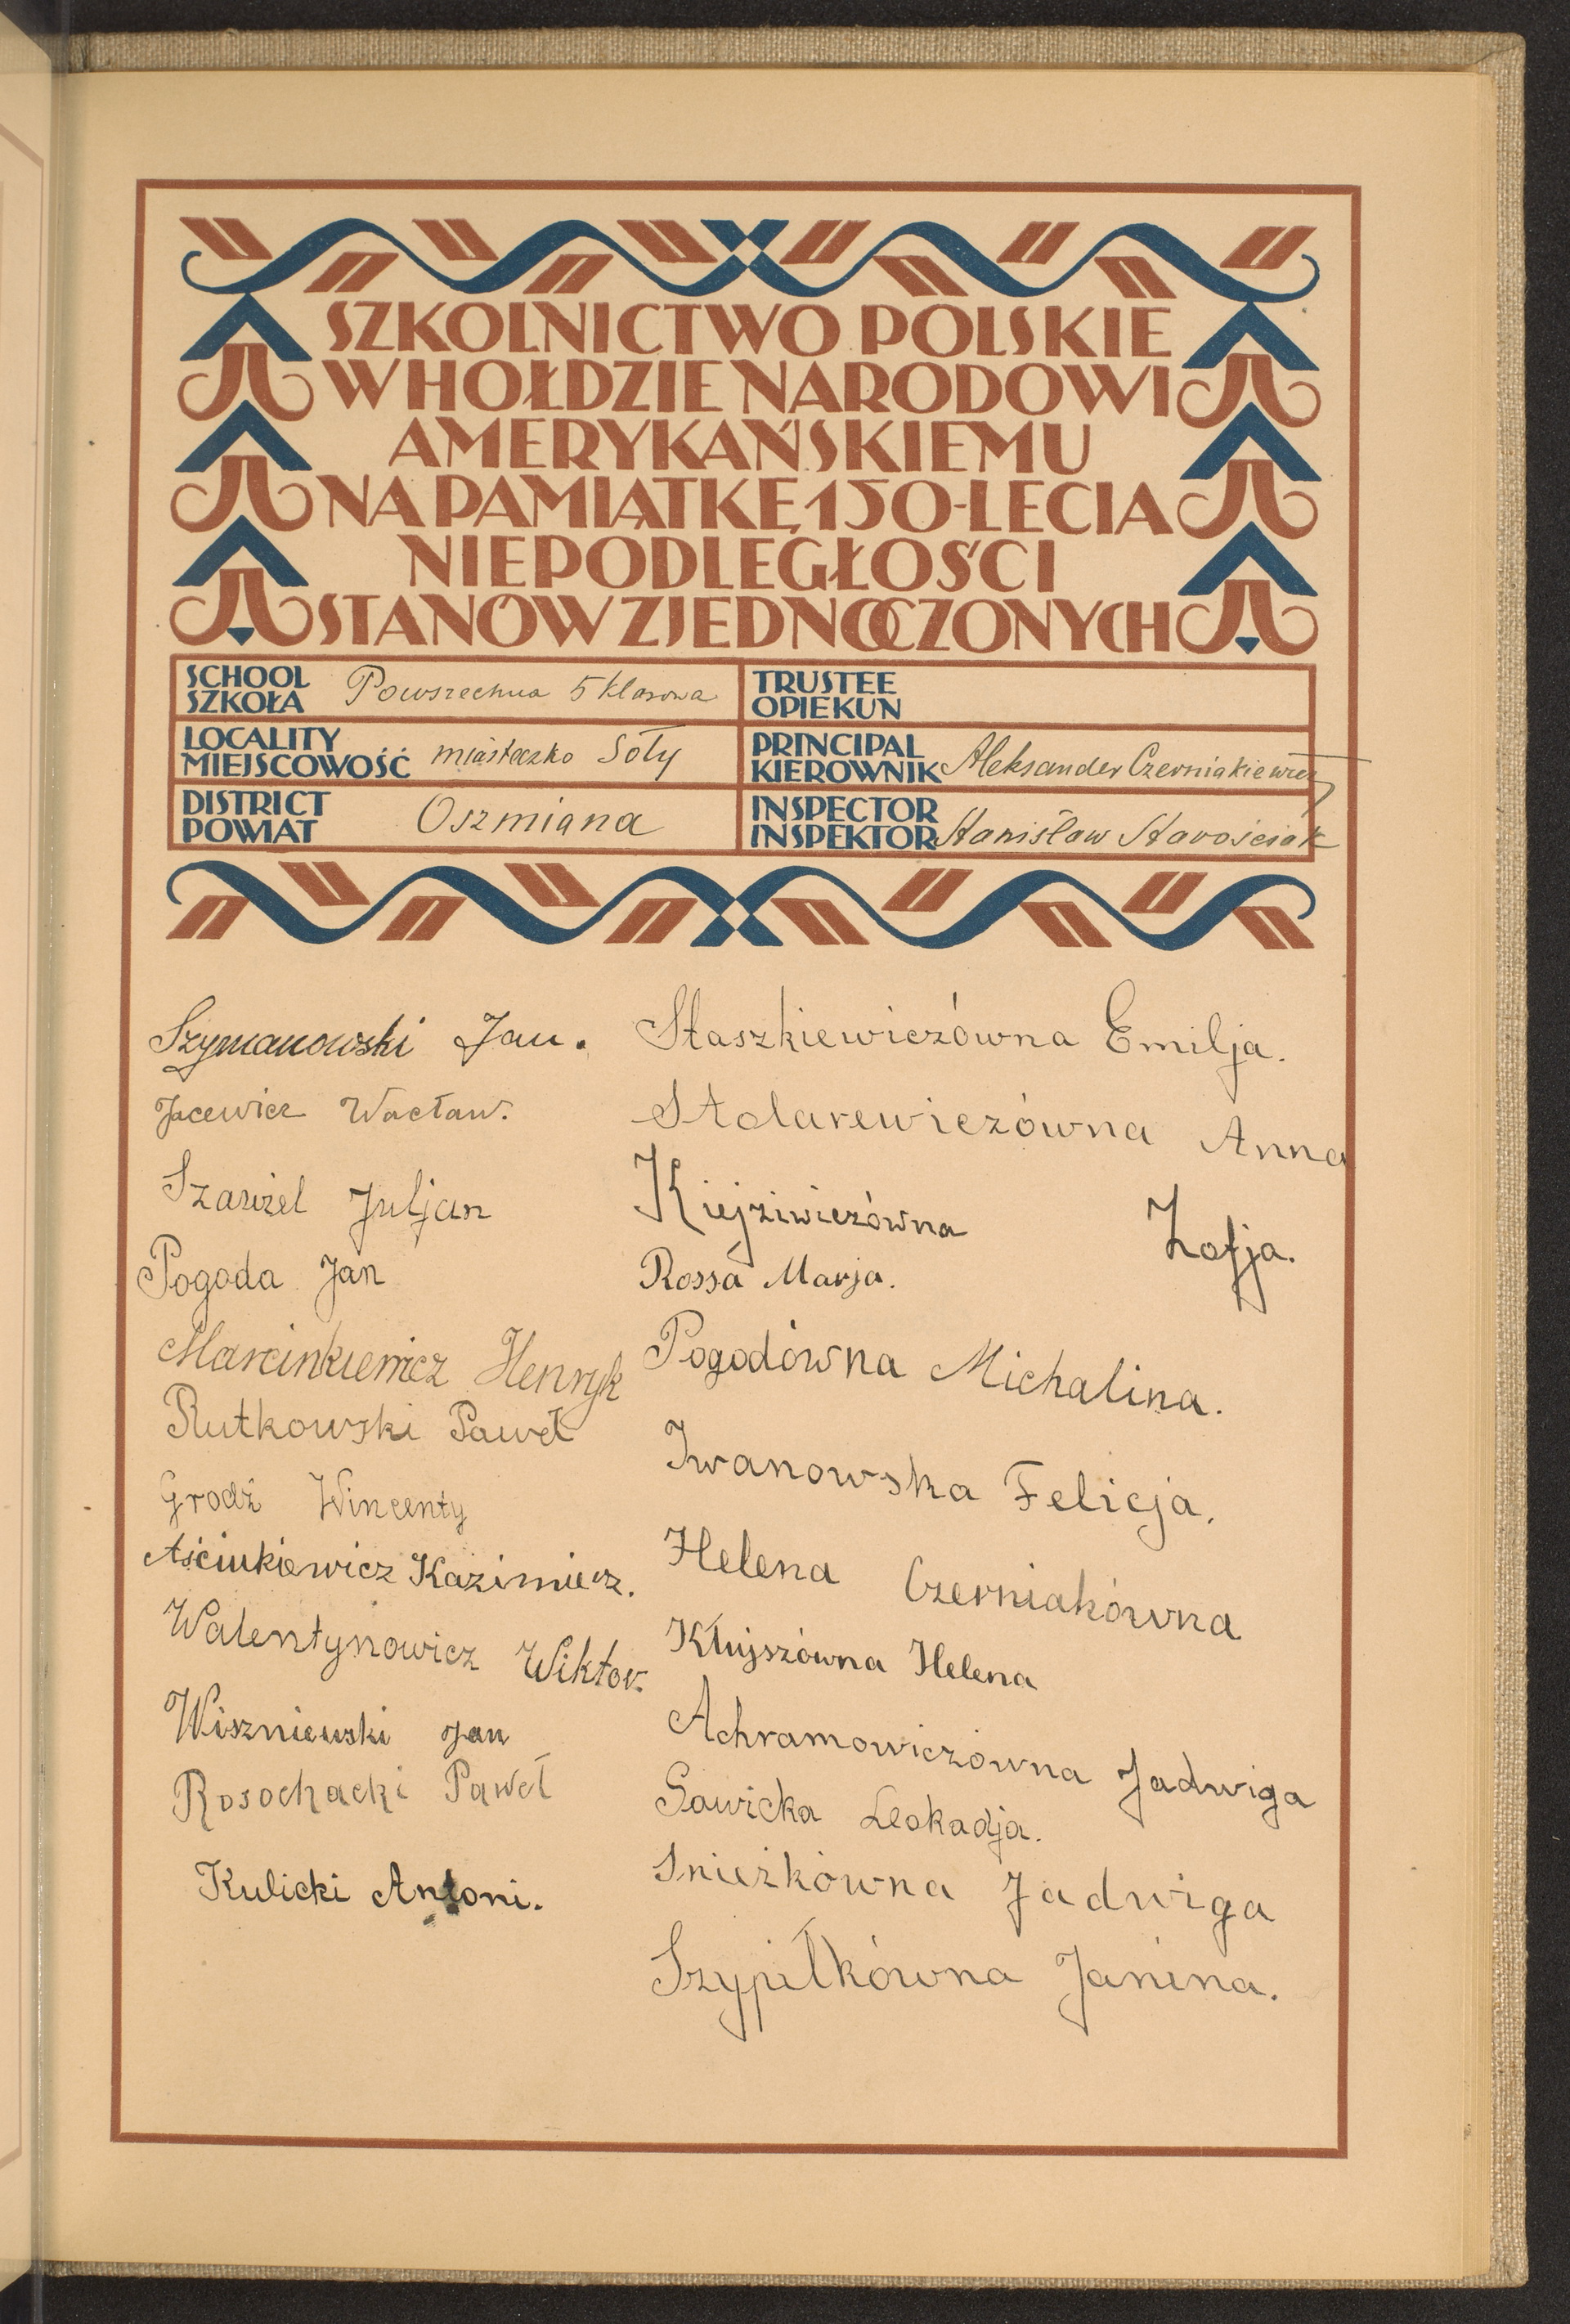 SZKOLNICTWO POLSKIE
W HOŁDZIE NARODOWI
AMERYKAŃSKIEMU
NA PAMIĄTKĘ 150-LECIA
NIEPODLEGŁOŚCI
STANÓW ZJEDNOCZONYCH
SCHOOL
SZKOŁA Powszechna 5 klasowa
TRUSTEE
OPIEKUN
LOCALITY
MIEJSCOWOŚĆ miasteczko Soły
PRINCIPAL
KIEROWNIK Aleksander Czerniakiewicz
DISTRICT
POWIAT Oszmiana
INSPECTOR
INSPEKTOR Stanisław Starościak
Szymanowski Jan.
Jacewicz Wacław.
Szawzel Juljan
Pogoda Jan
Marcinkiewicz Henryk
Rutkowski Paweł
Grodź Wincenty
Aściukiewicz Kazimierz.
Walentynowicz Wiktor.
Wiszniewski Jan
Rosochacki Paweł
Kulicki Antoni.
Staszkiewiczówna Emilja.
Stolarewiczówna Anna
Kiejziwiczówna Zofja.
Rossa Marja.
Pogodówna Michalina.
Iwanowska Felicja.
Helena Czerniakówna
Kłujszówna Helena
Achramowiczówna Jadwiga
Sawicka Leokadja.
Snieżkówna Jadwiga
Szypiłkówna Janina.